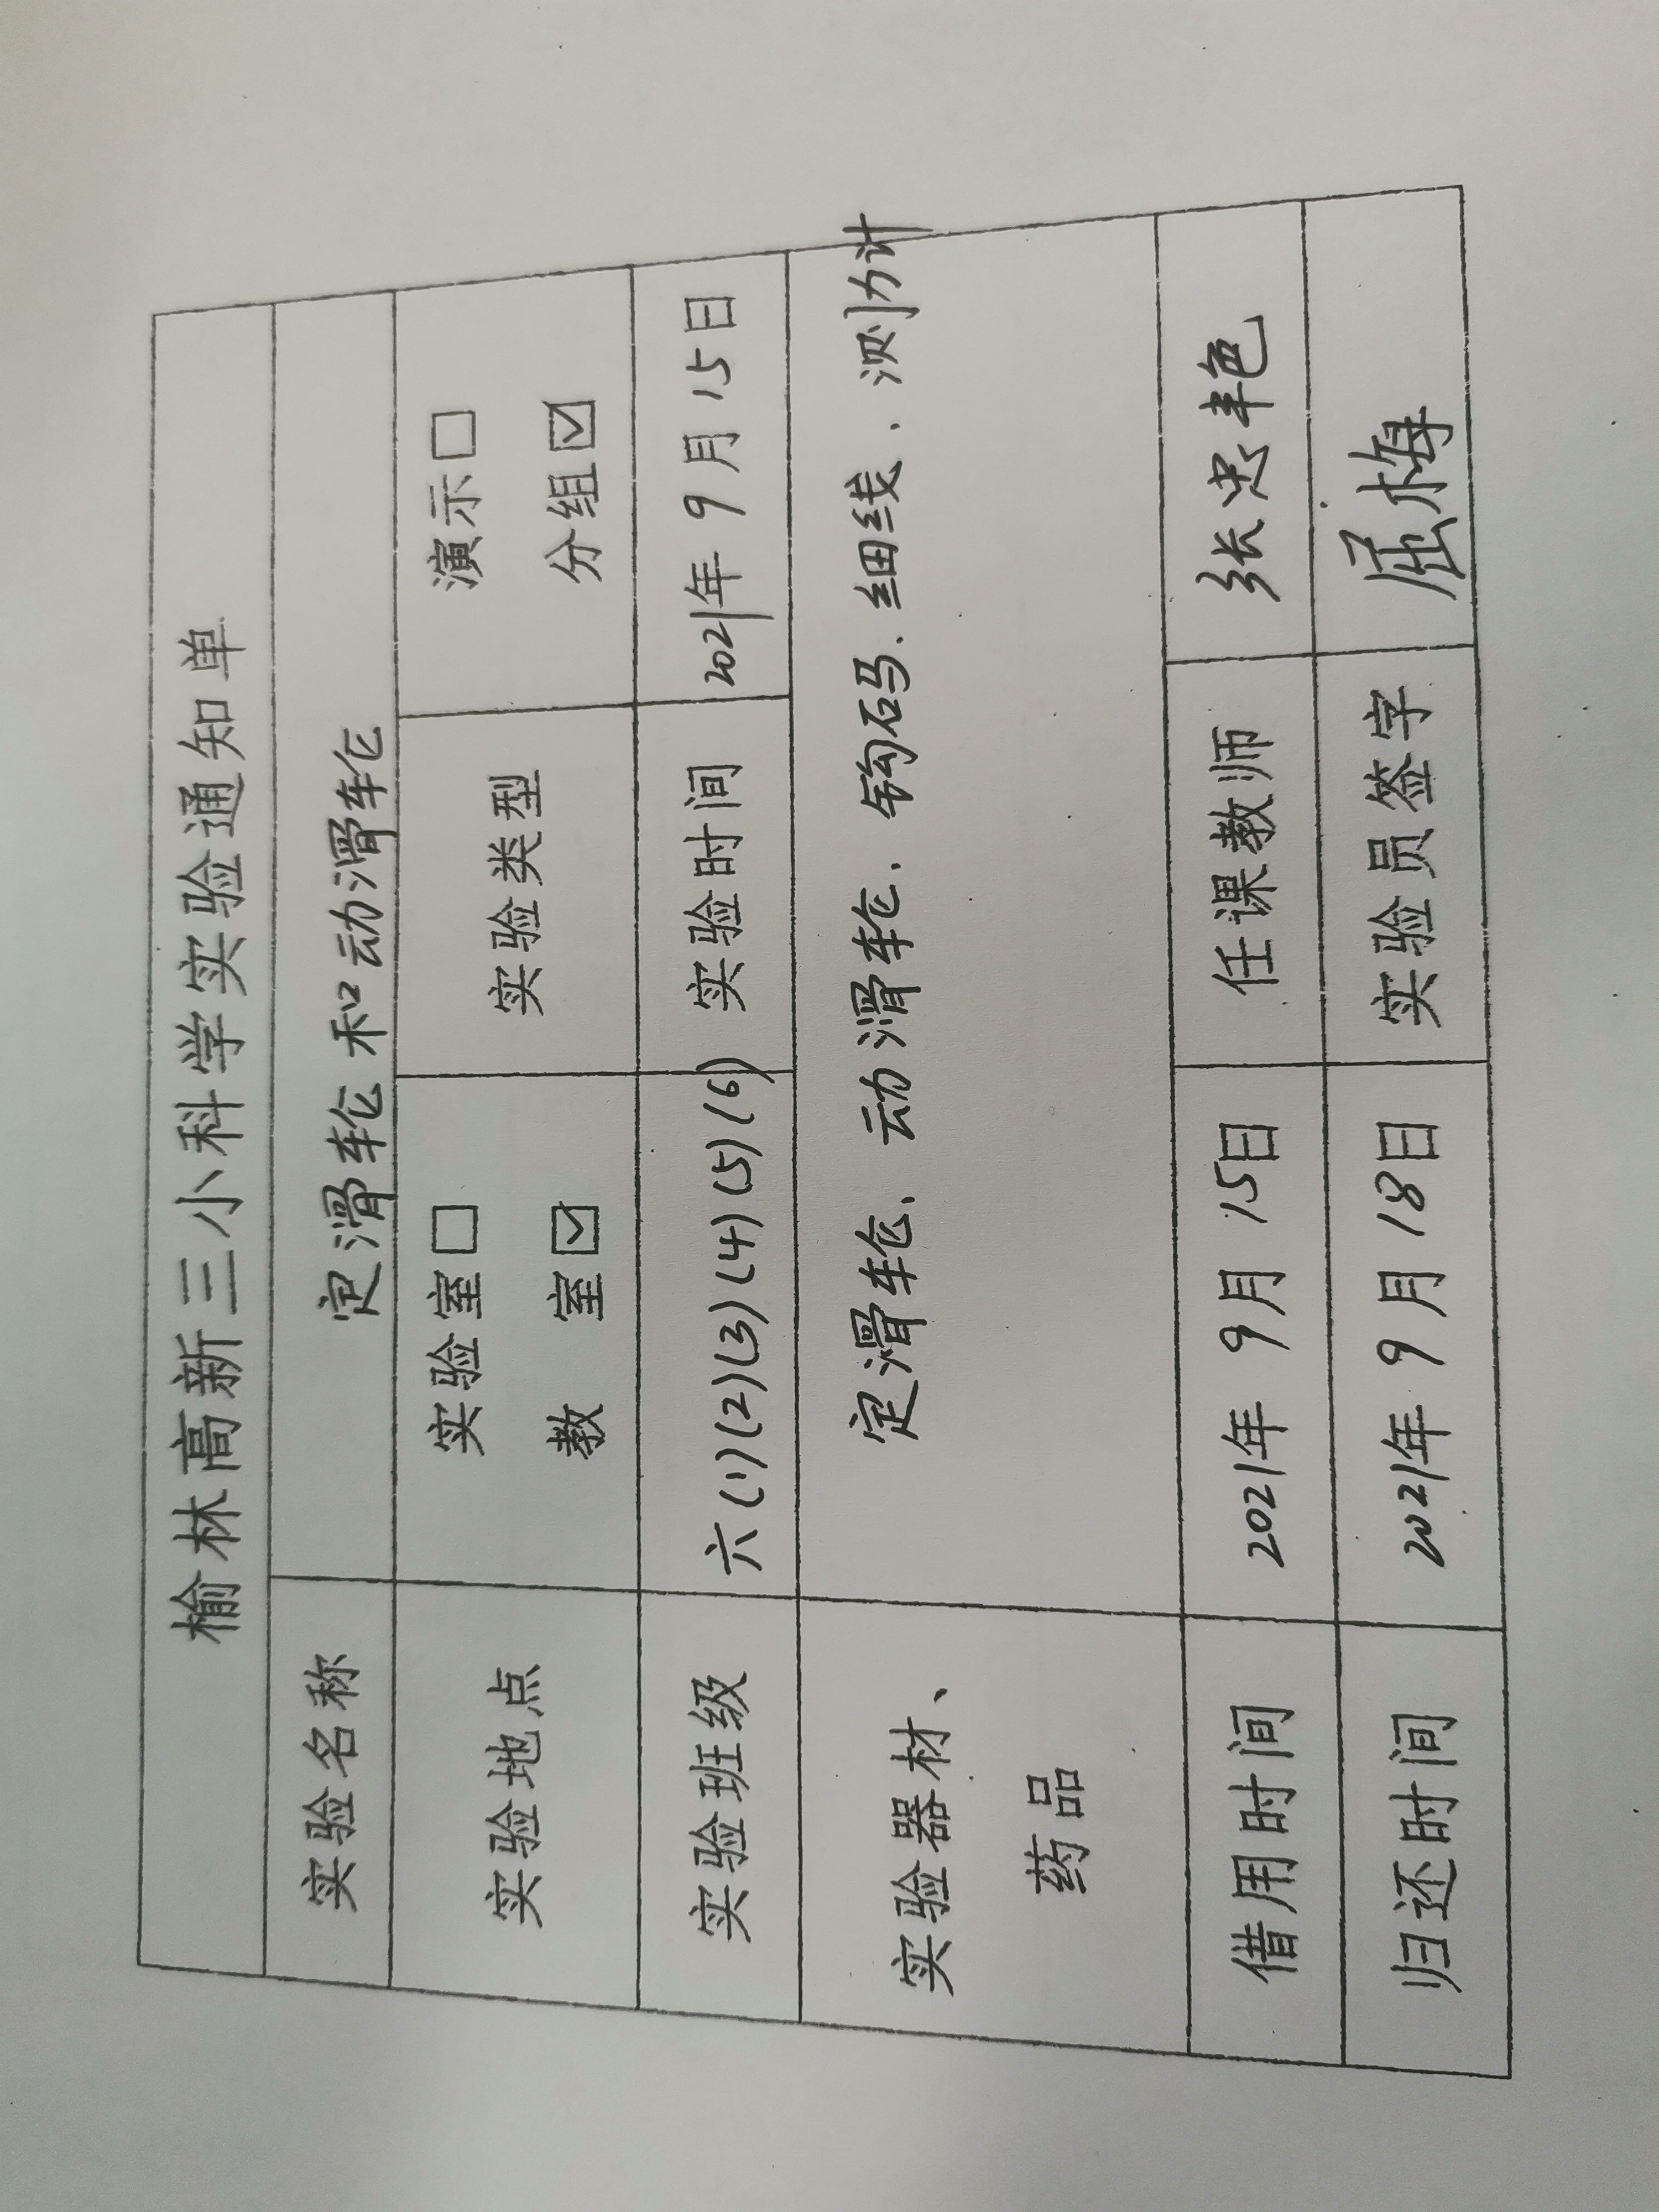 榆林高新三小科学实验通知单
实验名称 定滑轮和动滑轮
实验地点 实验室□ 教 室☑ 实验类型 演示□ 分组☑
实验班级 六(1)(2)(3)(4)(5)(6) 实验时间 2021年 9月 15日
实验器材、药品 定滑轮、动滑轮、钩石马、细线、测力计
借用时间 2021年 9月 15日 任课教师 张忠艳
归还时间 2021年 9月 18日 实验员签字 屈梅